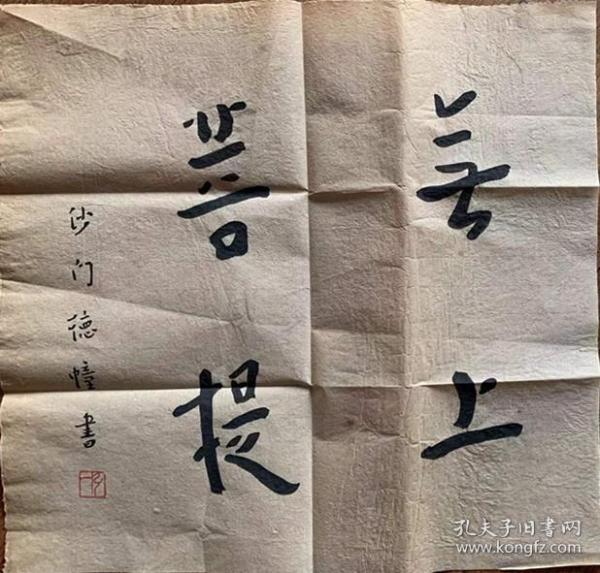 無上
菩提
沙门德幢書
孔夫子旧書网
www.kongfz.com